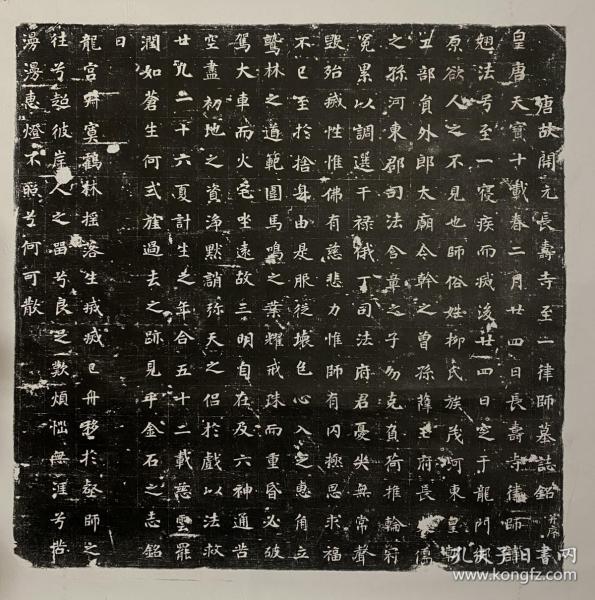 唐故開元長壽寺至一律師墓誌銘并序
皇唐天寶十載春二月廿四日長壽寺律師諱
翅法号至一寝疾而滅後廿四日窆于龍門
原欲人之不見也師俗姓柳氏族茂河東皇
工部員外郎太廟令幹之曾孫薛王府長儒
之孫河東郡司法含章之子幼克負荷推輪
冕累以調選干禄俄丁司法府君憂哭無常聲
毀殆滅性惟佛有慈悲力惟師有内極思求福
不已至於捨身由是服從壞色心入定惠角立
鷲林之道範圍馬鳴之業耀戒珠而重昏必破
駕大車而火宅坐遠故三明自在及六神通苦
空盡初地之資浄黙誚弥天之侣於戲以法救
世凡二十六夏計生之年合五十二載慈雲罷
潤如蒼生何式旌過去之跡見乎金石之志銘
曰
龍宮兮寞鶴林揺落生滅滅已舟移於壑師之
往兮超彼岸人之留兮良足歎煩惱無涯兮苦
漫漫惠燈不照兮何可散
孔夫子旧书网
www.kongfz.com